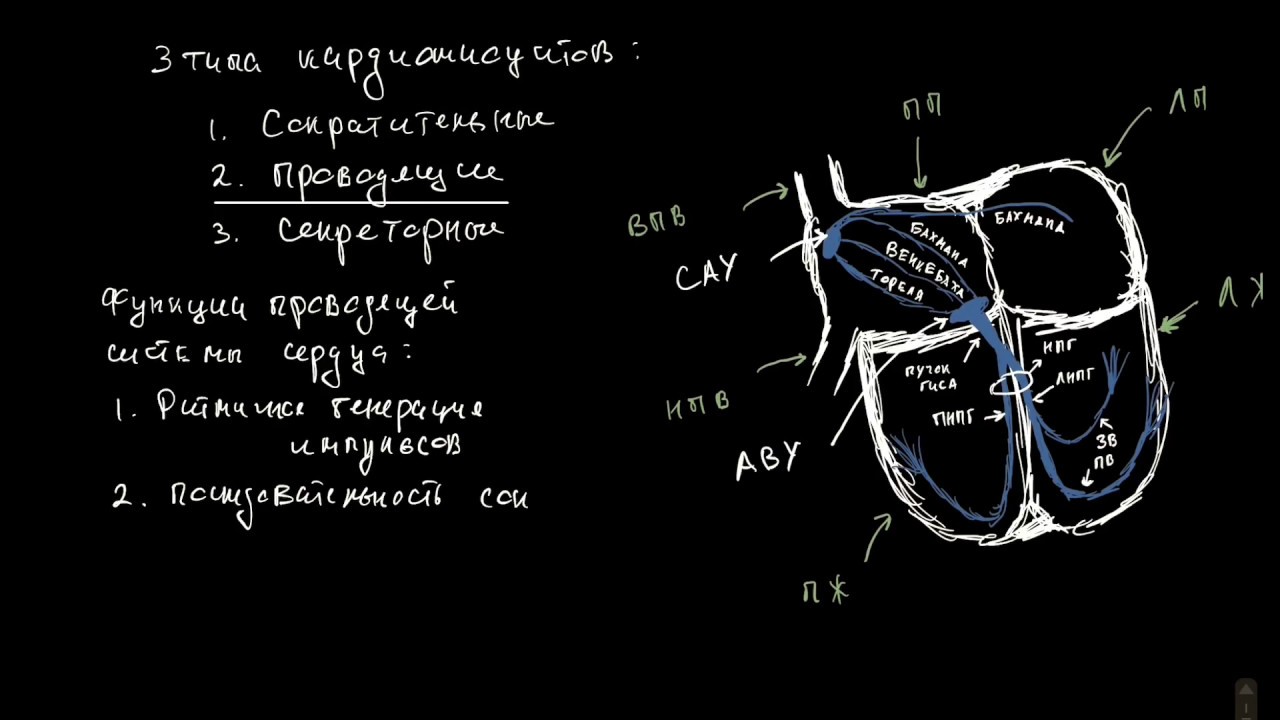 3 типа кардиомиоцитов:
1. Сократительные
2. Проводящие
3. Секреторные
Функции проводящей
системы сердца:
1. Ритмичная генерация
импульсов
2. Последовательность сок
ПП
ЛП
ВПВ
САУ
БАХМАНА
БАХМАНА
ВЕНКЕБАХА
ТОРЕЛЯ
ЛЖ
НПВ
АВУ
ПУЧОК
ГИСА
НПГ
ЛНПГ
ПНПГ
ЗВ
ПВ
ПЖ